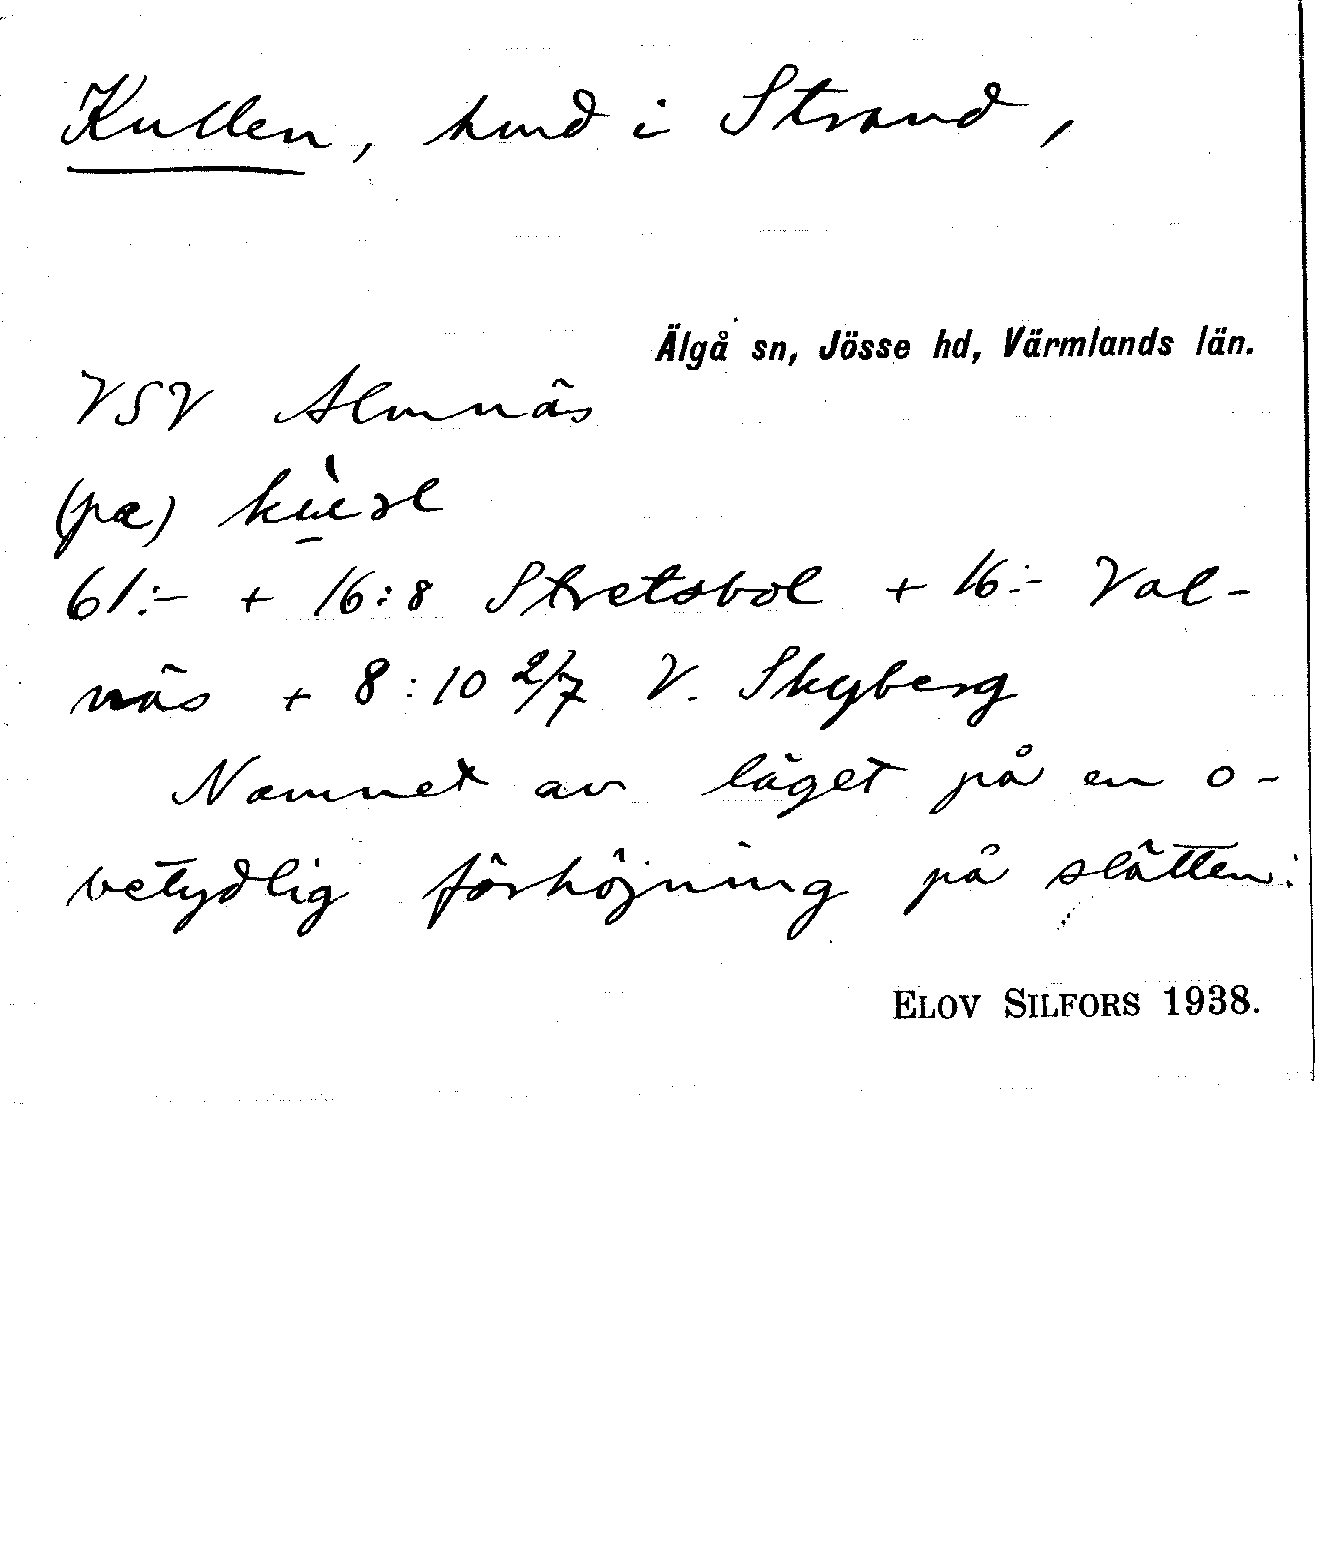 Kullen, hmd i Strand,
Älgå sn, Jösse hd, Värmlands län.
VSV Almnäs
(pæ)
61:- + 16:8 Stretsbol + 16:- Val-
näs + 8:10 2/7 V. Skyberg
Namnet av läget på en o-
betydlig förhöjning på slätten.
ELOV SILFORS 1938.